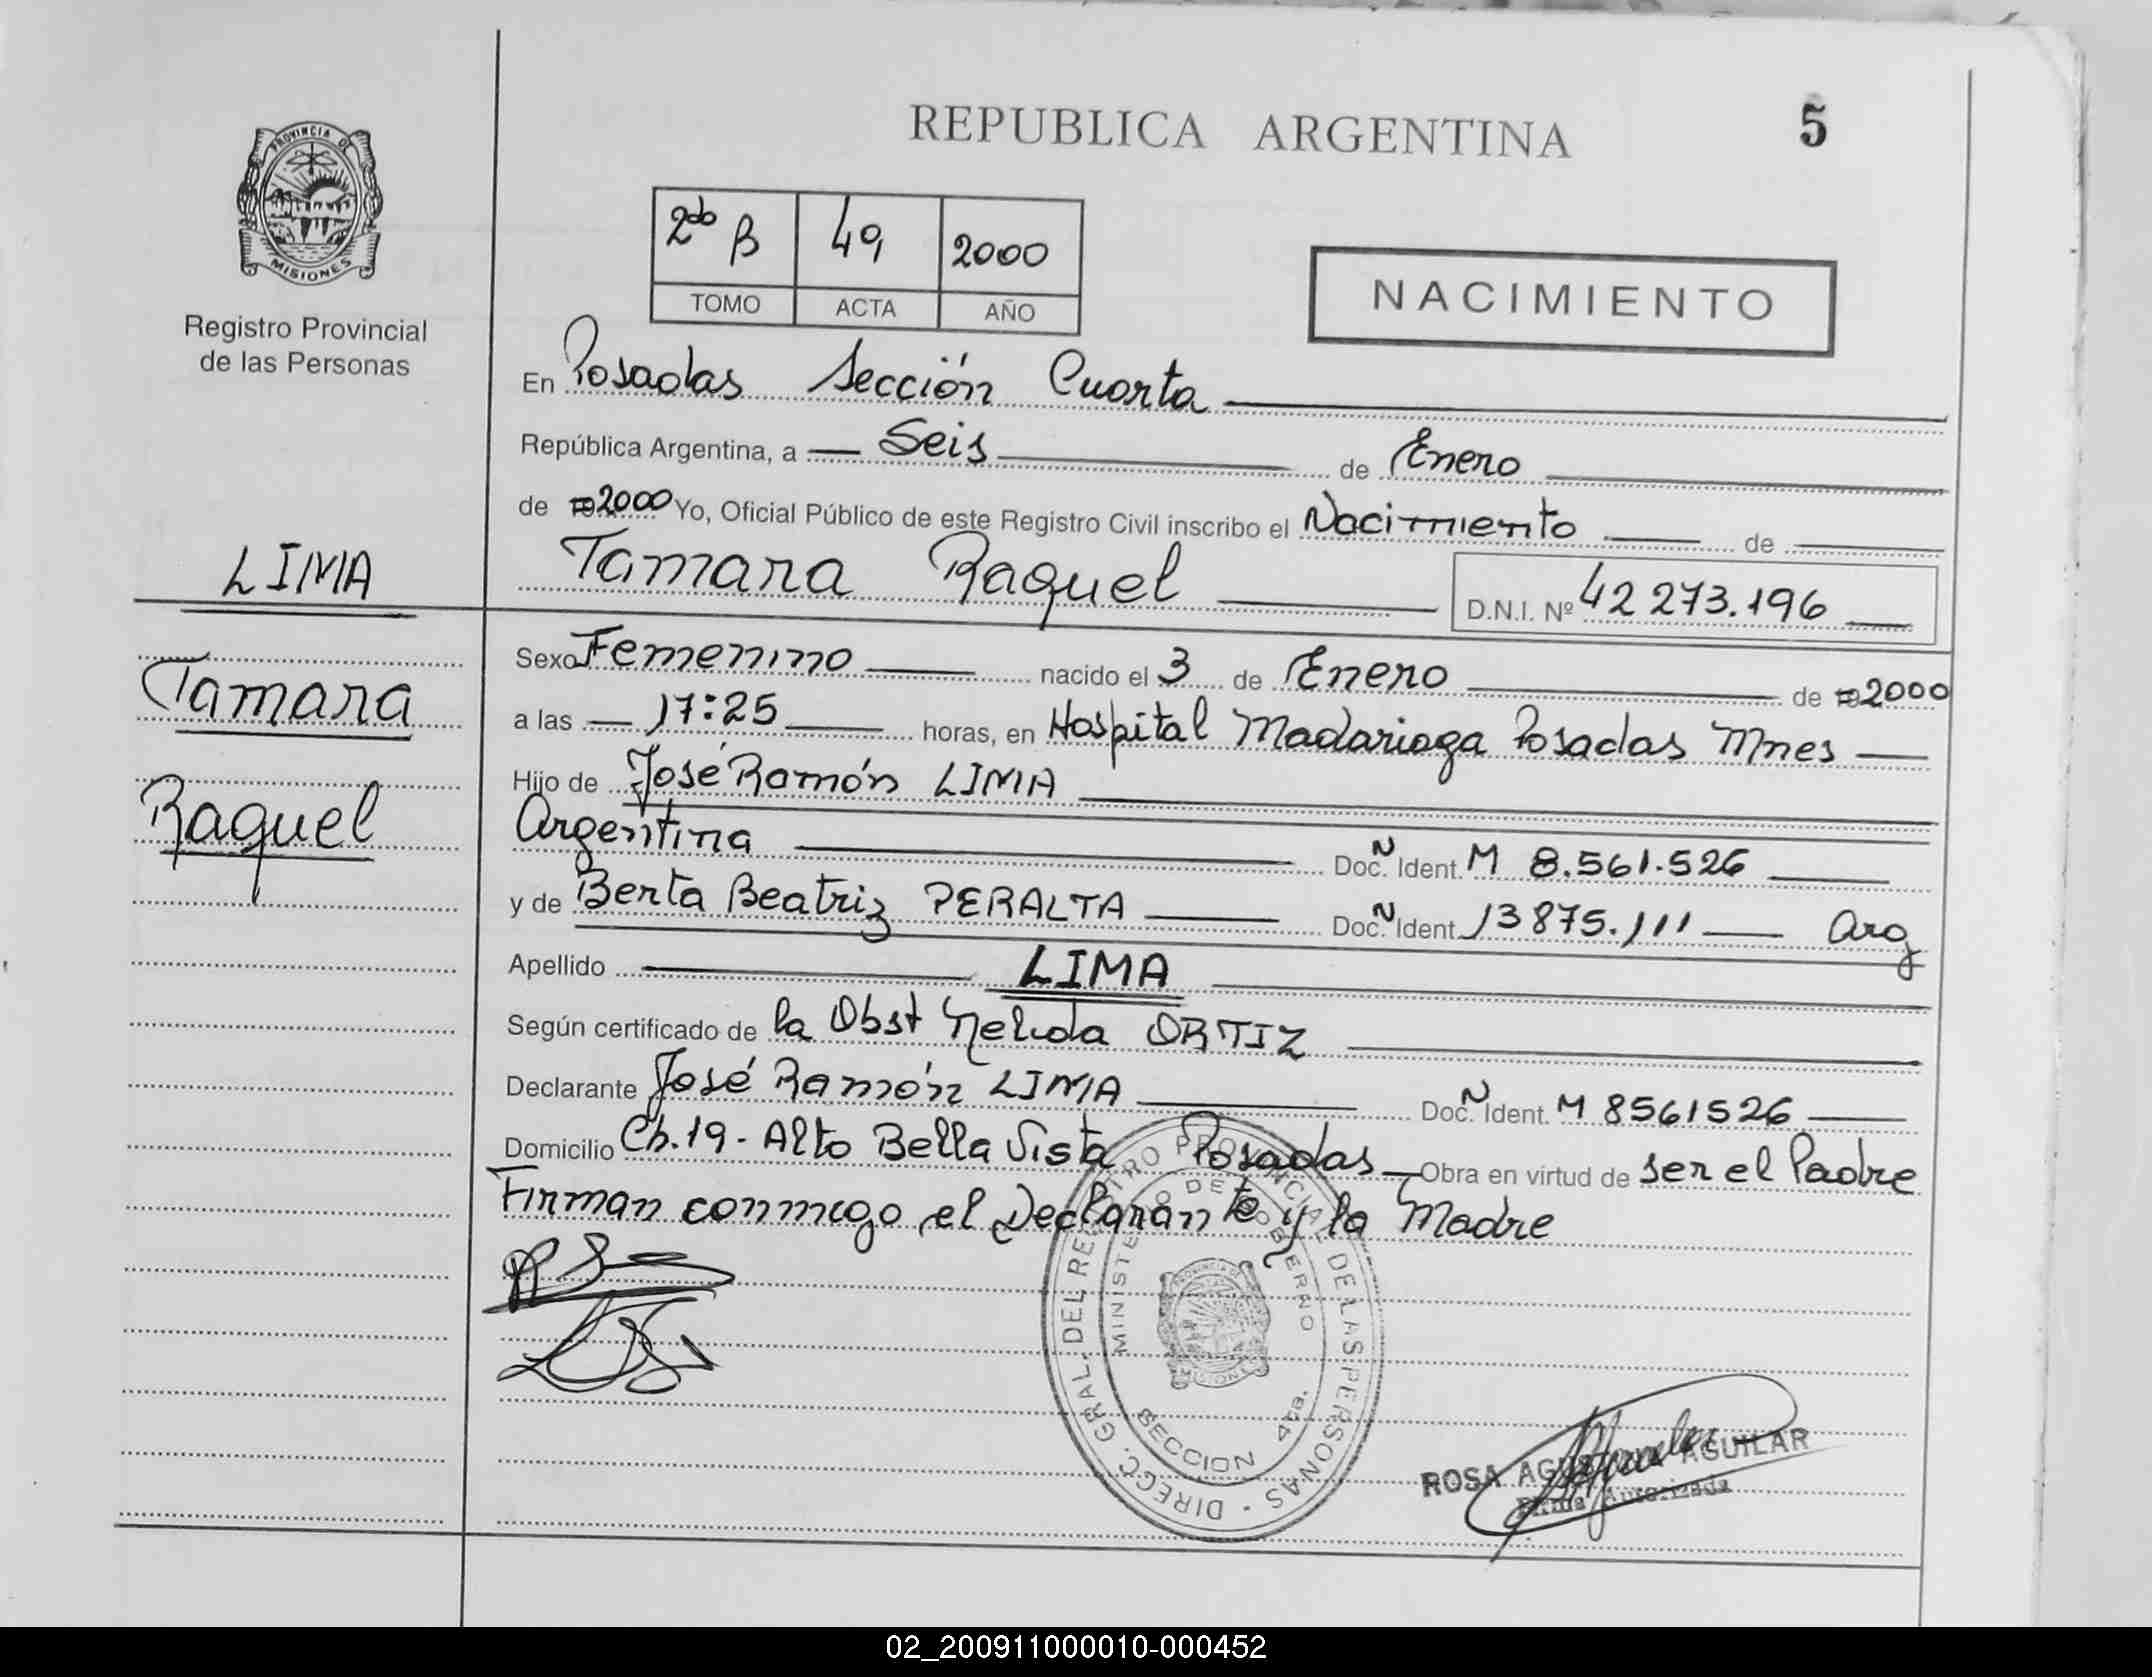 REPUBLICA ARGENTINA
5
PROVINCIA DE
MISIONES
Registro Provincial
de las Personas
2do B 49 2000
TOMO ACTA AÑO
NACIMIENTO
En Posadas Sección Cuarta
República Argentina, a Seis de Enero
de 2000 Yo, Oficial Público de este Registro Civil inscribo el Nacimiento de
Tamara Raquel D.N.I. Nº 42 273.196
LIMA
Tamara
Raquel
Sexo Femenino nacido el 3 de Enero de 2000
a las 17:25 horas, en Hospital Madariaga Posadas Mnes
Hijo de José Ramón LIMA
Argentina Doc. N Ident. M 8.561.526
y de Berta Beatriz PERALTA Doc. N Ident. 13875.111 Arg
Apellido LIMA
Según certificado de la Obst Nelida ORTIZ
Declarante José Ramón LIMA Doc. N Ident. M 8561526
Domicilio Ch. 19 - Alto Bella Vista Posadas Obra en virtud de ser el Padre
Firman conmigo el Declarante y la Madre
DIRECC. GRAL. DEL REGISTRO PROVINCIAL DE LAS PERSONAS
MINISTERIO DE GOBIERNO
SECCION 4ta.
ROSA AGUILAR
Firma Autorizada
02_200911000010-000452